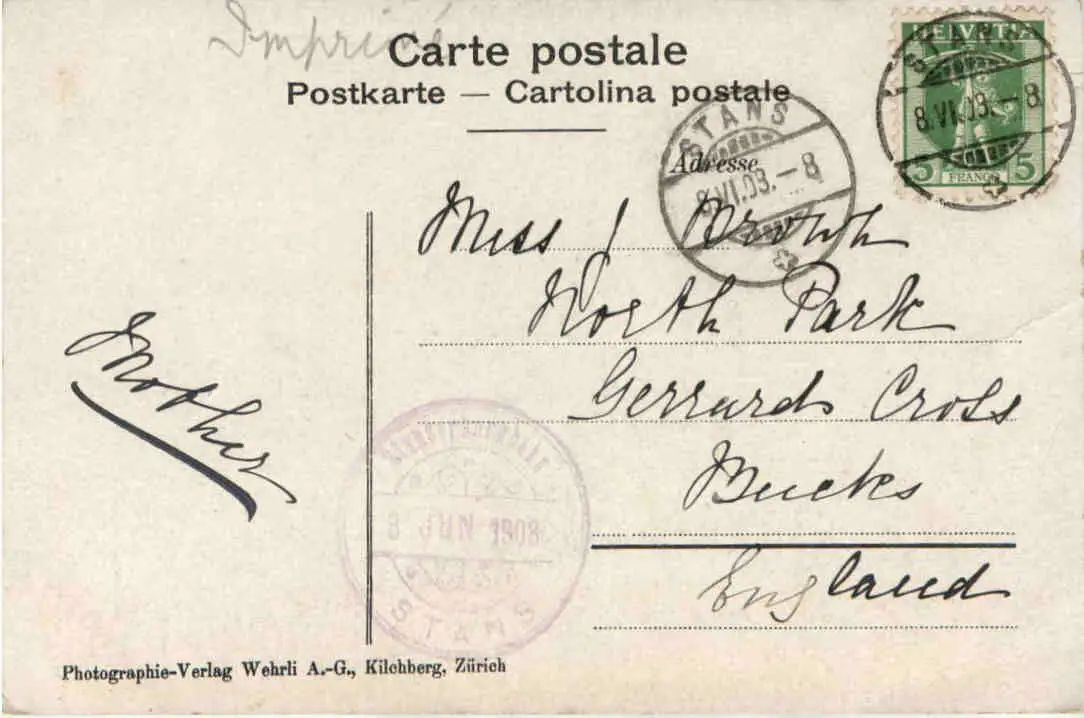 Imprimé
Carte postale
Postkarte — Cartolina postale
HELVETIA
STANS
8.VI.08.–8
5 5
FRANCO
STANS
8.VI.08.–8
Adresse
Miss J Brown
North Park
Gerrards Cross
Bucks
England
Mother
8 JUN 1908
STANS
Photographie-Verlag Wehrli A.-G., Kilchberg, Zürich